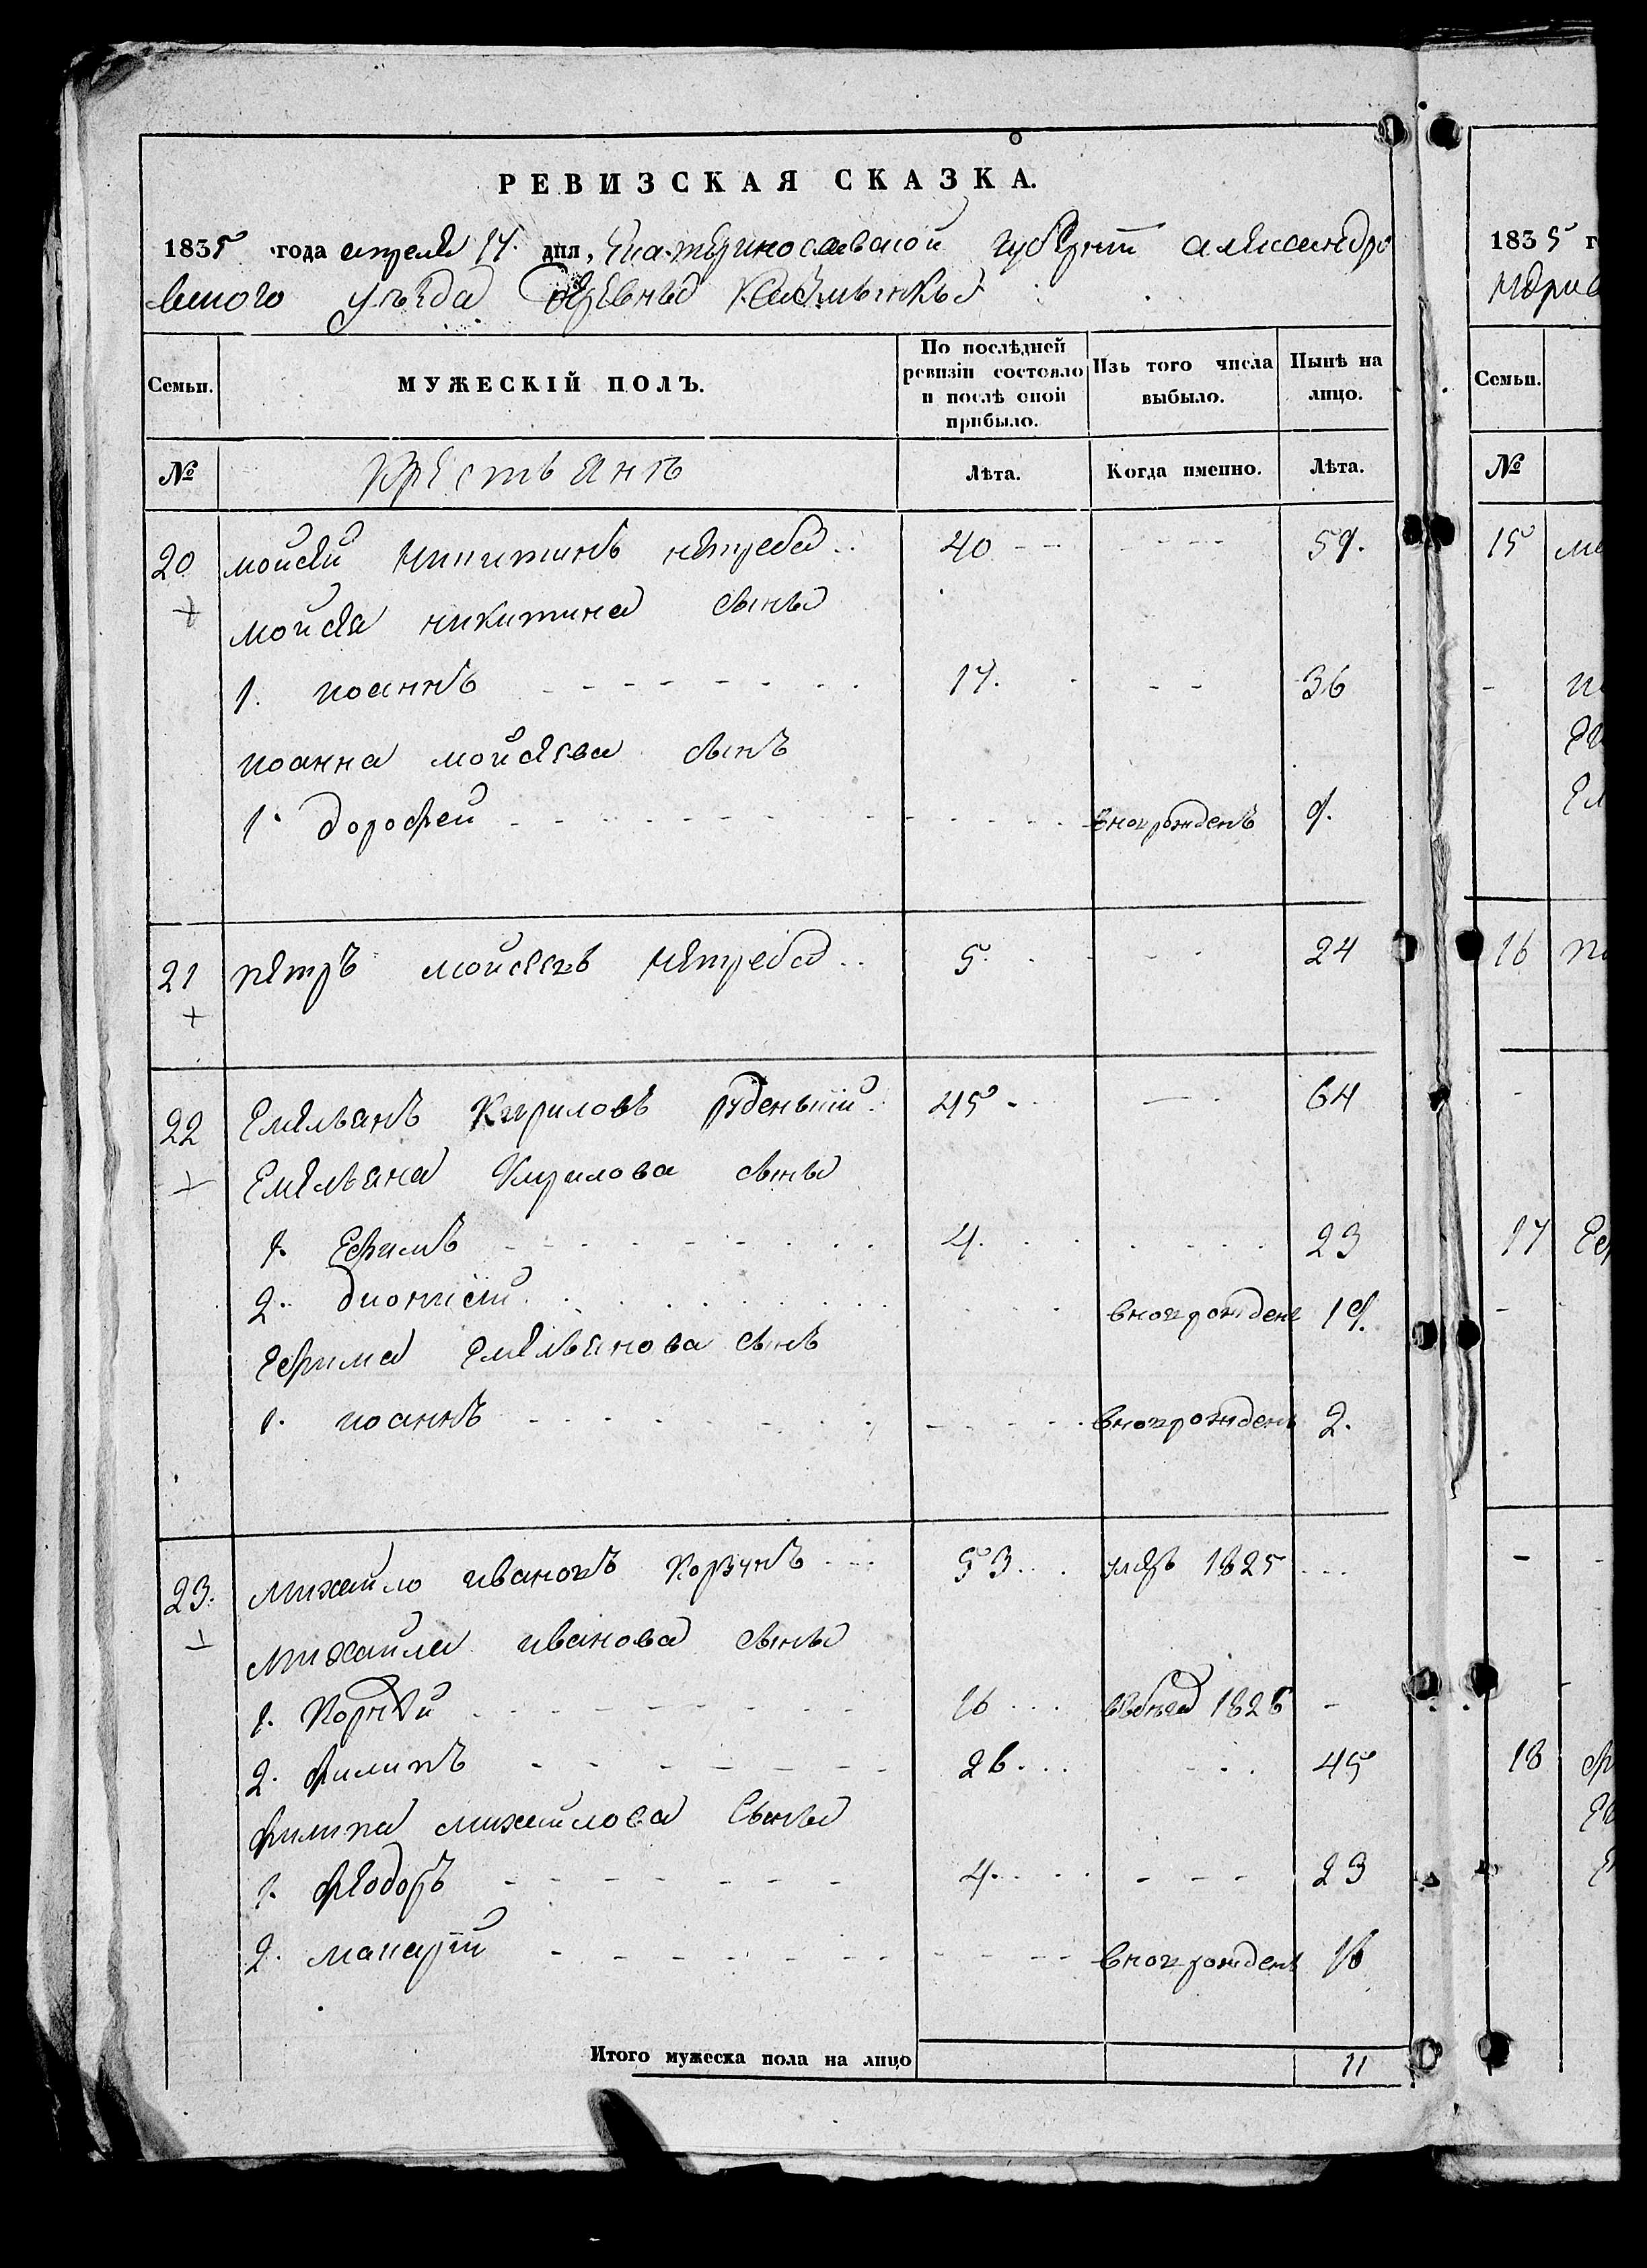 РЕВИЗСКАЯ СКАЗКА.
1835 года апреля 17. дня, Екатеринославской губернии александро
вского уезда деревны
Семьи. МУЖЕСКІЙ ПОЛЪ. По послѣдней ревизіи состояло и послѣ оной прибыло. Изъ того числа выбыло. Нынѣ на лицо.
№ крестьянъ Лѣта. Когда именно. Лѣта.
20 мойсей никитинъ нетреба 40 59.
мойсея никитина сыны
1. иоаннъ 17. 36
иоанна мойсеева сынъ
1. дорофей вновьрожденъ 9.
21 петръ мойсеевъ нетреба 5. 24
22 Емельянъ Кириловъ руденький 45 64
Емельяна Кирилова сыны
1. Ефимъ 4. 23
2. дионисий вновьрожденъ 19.
Ефима Емельянова сынъ
1. иоаннъ вновьрожденъ 2.
23. михайло ивановъ Корзунъ 53 умеръ 1825
михайла иванова сыны
1. Корней 16 1826 -
2. филипъ 26 45
филипа михайлова сыны
1. феодоръ 4. 23
2. макарий вновьрожденъ 16
Итого мужеска пола на лицо 11
1835 г
Семьи.
№
15
16
17
18